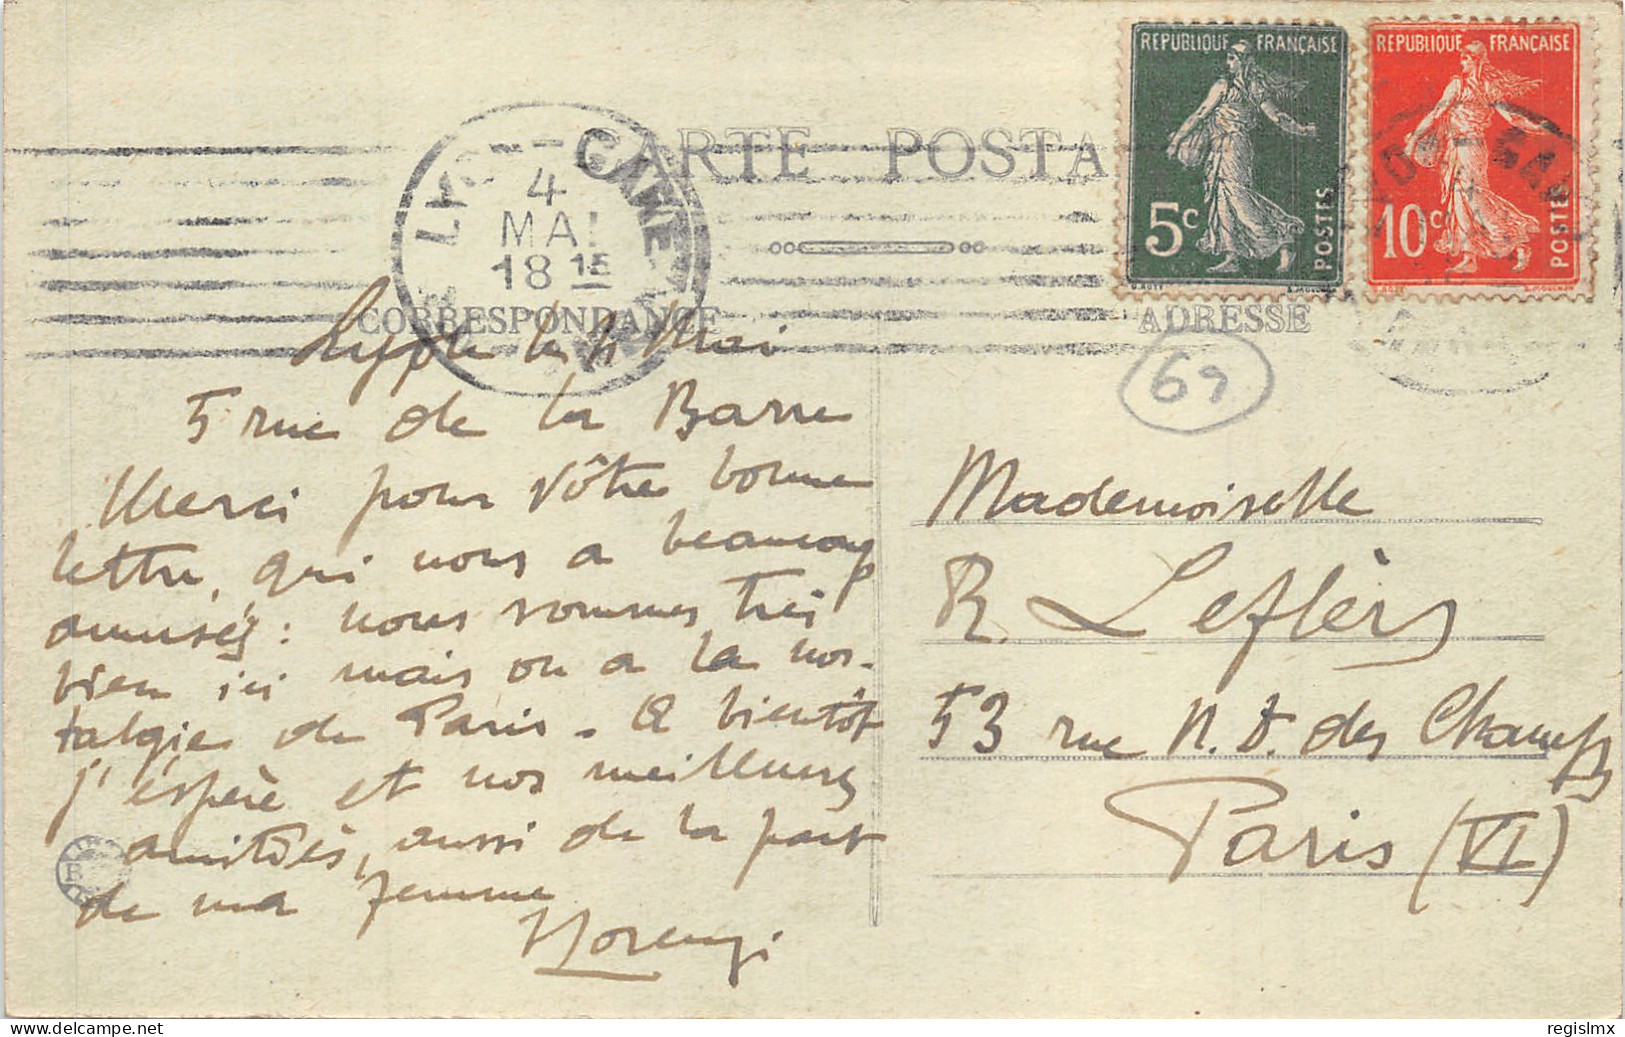 CARTE POSTA
RÉPUBLIQUE FRANÇAISE
5c
POSTES
RÉPUBLIQUE FRANÇAISE
10c
POSTES
GARE
4
MAI
18 15
CORRESPONDANCE
ADRESSE
69
le 4 Mai
5 rue de la Barre
Merci pour vôtre bonne
lettre, qui nous a beaucoup
amusés : nous sommes très
bien ici mais on a la nos-
talgie de Paris. A bientôt
j'éspère et nos meilleures
amitiés, aussi de la part
de ma femme
Mademoiselle
R. Leflèrs
53 rue N. D. des Champs
Paris (VI)
regislmx